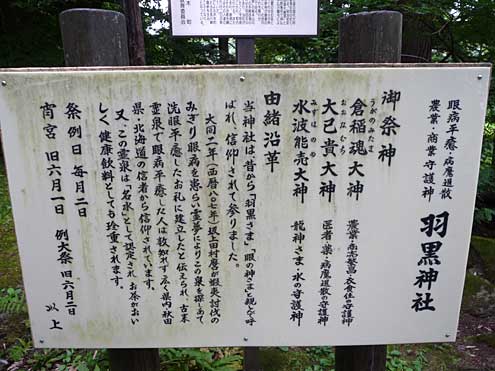 眼病平癒・病魔退散
農業・商業守護神
羽黒神社
御祭神
うがのみたま
倉稲魂大神 農業・商売繁昌・衣食住の守護神
おおなむち
大己貴大神 医者・薬・病魔退散の守護神
みずはのめ
水波能売大神 龍神さま・水の守護神
由緒沿革
当神社は、昔から「羽黒さま」「眼の神さま」と親しく呼
ばれ、信仰されて参りました。
大同二年(西暦八〇七年)坂上田村麿が蝦夷討伐の
みぎり眼病を患らい霊夢によりこの泉を探しあて
洗眼平癒したお礼に建立したと伝えられ、古来
霊泉で眼病平癒した人は数知れず、広く県内、秋田
県・北海道の信者から信仰されています。
又、この霊泉は「名泉」として認定され、お茶がおい
しく健康飲料としても珍重されます。
祭例日 毎月二日
宵宮 旧六月一日 例大祭 旧六月二日
以上
木町